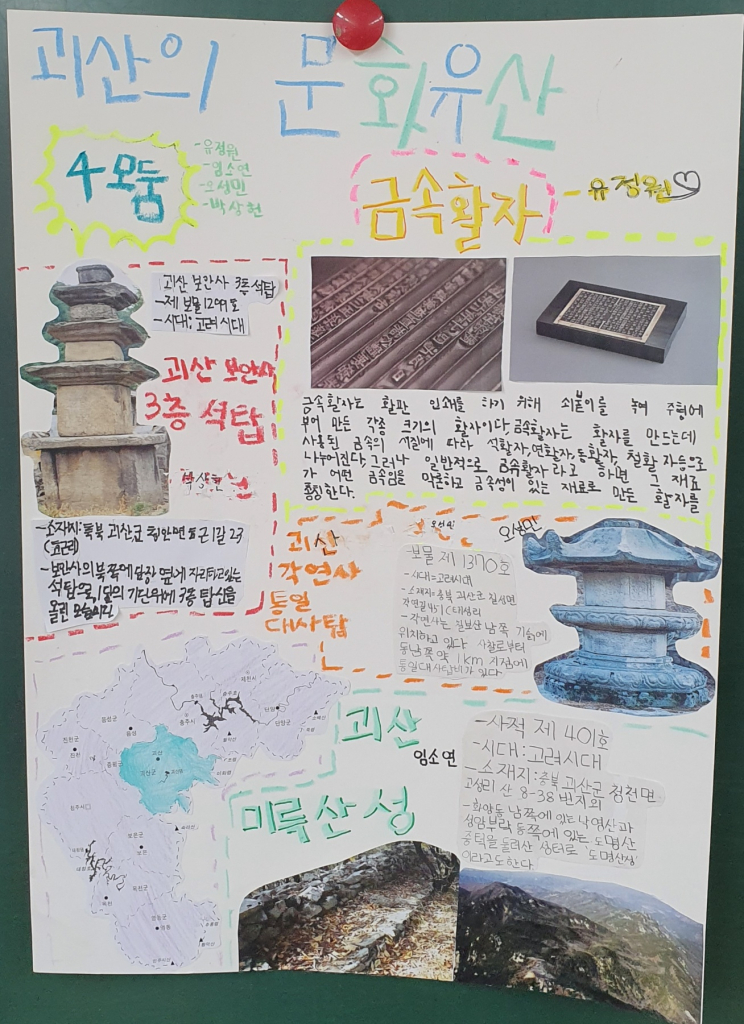 괴산의 문화유산
4모둠
-유정원
-임소연
-오성민
-박상현
금속활자 - 유정원♡
괴산 보안사 3층 석탑
-제 보물 1299호
-시대: 고려시대
괴산 보안사
3층 석탑
박상현
-소재지: 충북 괴산군 청안면 효근1길 23
(효근리)
-보안사의 북쪽에 담장 옆에 자리잡고 있는
석탑으로, 1단의 기단위에 3층 탑신을
올린 모습이다
금속활자는 활판 인쇄를 하기 위해 쇠붙이를 녹여 주형에
부어 만든 각종 크기의 활자이다. 금속활자는 활자를 만드는데
사용된 금속의 성질에 따라 석활자, 연활자, 동활자, 철활자등으로
나누어진다. 그러나 일반적으로 금속활자라고 하면 그 재료
가 어떤 금속임을 막론하고 금속성이 있는 재료로 만든 활자를
통칭한다.
괴산
각연사
통일
대사탑
오성민
보물 제 1370호
-시대=고려시대
-소재지=충북 괴산군 칠성면
각연길 451 (태성리)
-각연사는 칠보산 남쪽 기슭에
위치하고 있다 사찰로부터
동남쪽 약 1km 지점에
통일대사탑비가 있다
괴산
임소연
미륵산성
-사적 제 401호
-시대: 고려시대
-소재지: 충북 괴산군 청천면
고성리 산 8-38 번지의
-화양동 남쪽에 있는 낙영산과
성암부락 동쪽에 있는 도명산
중턱을 둘러산 성터로 '도명산성'
이라고도한다
제천시
충주시
단양군
음성군
음성
진천군
진천
괴산
괴산군
청주시
보은군
보은
옥천군
옥천
영동군
영동